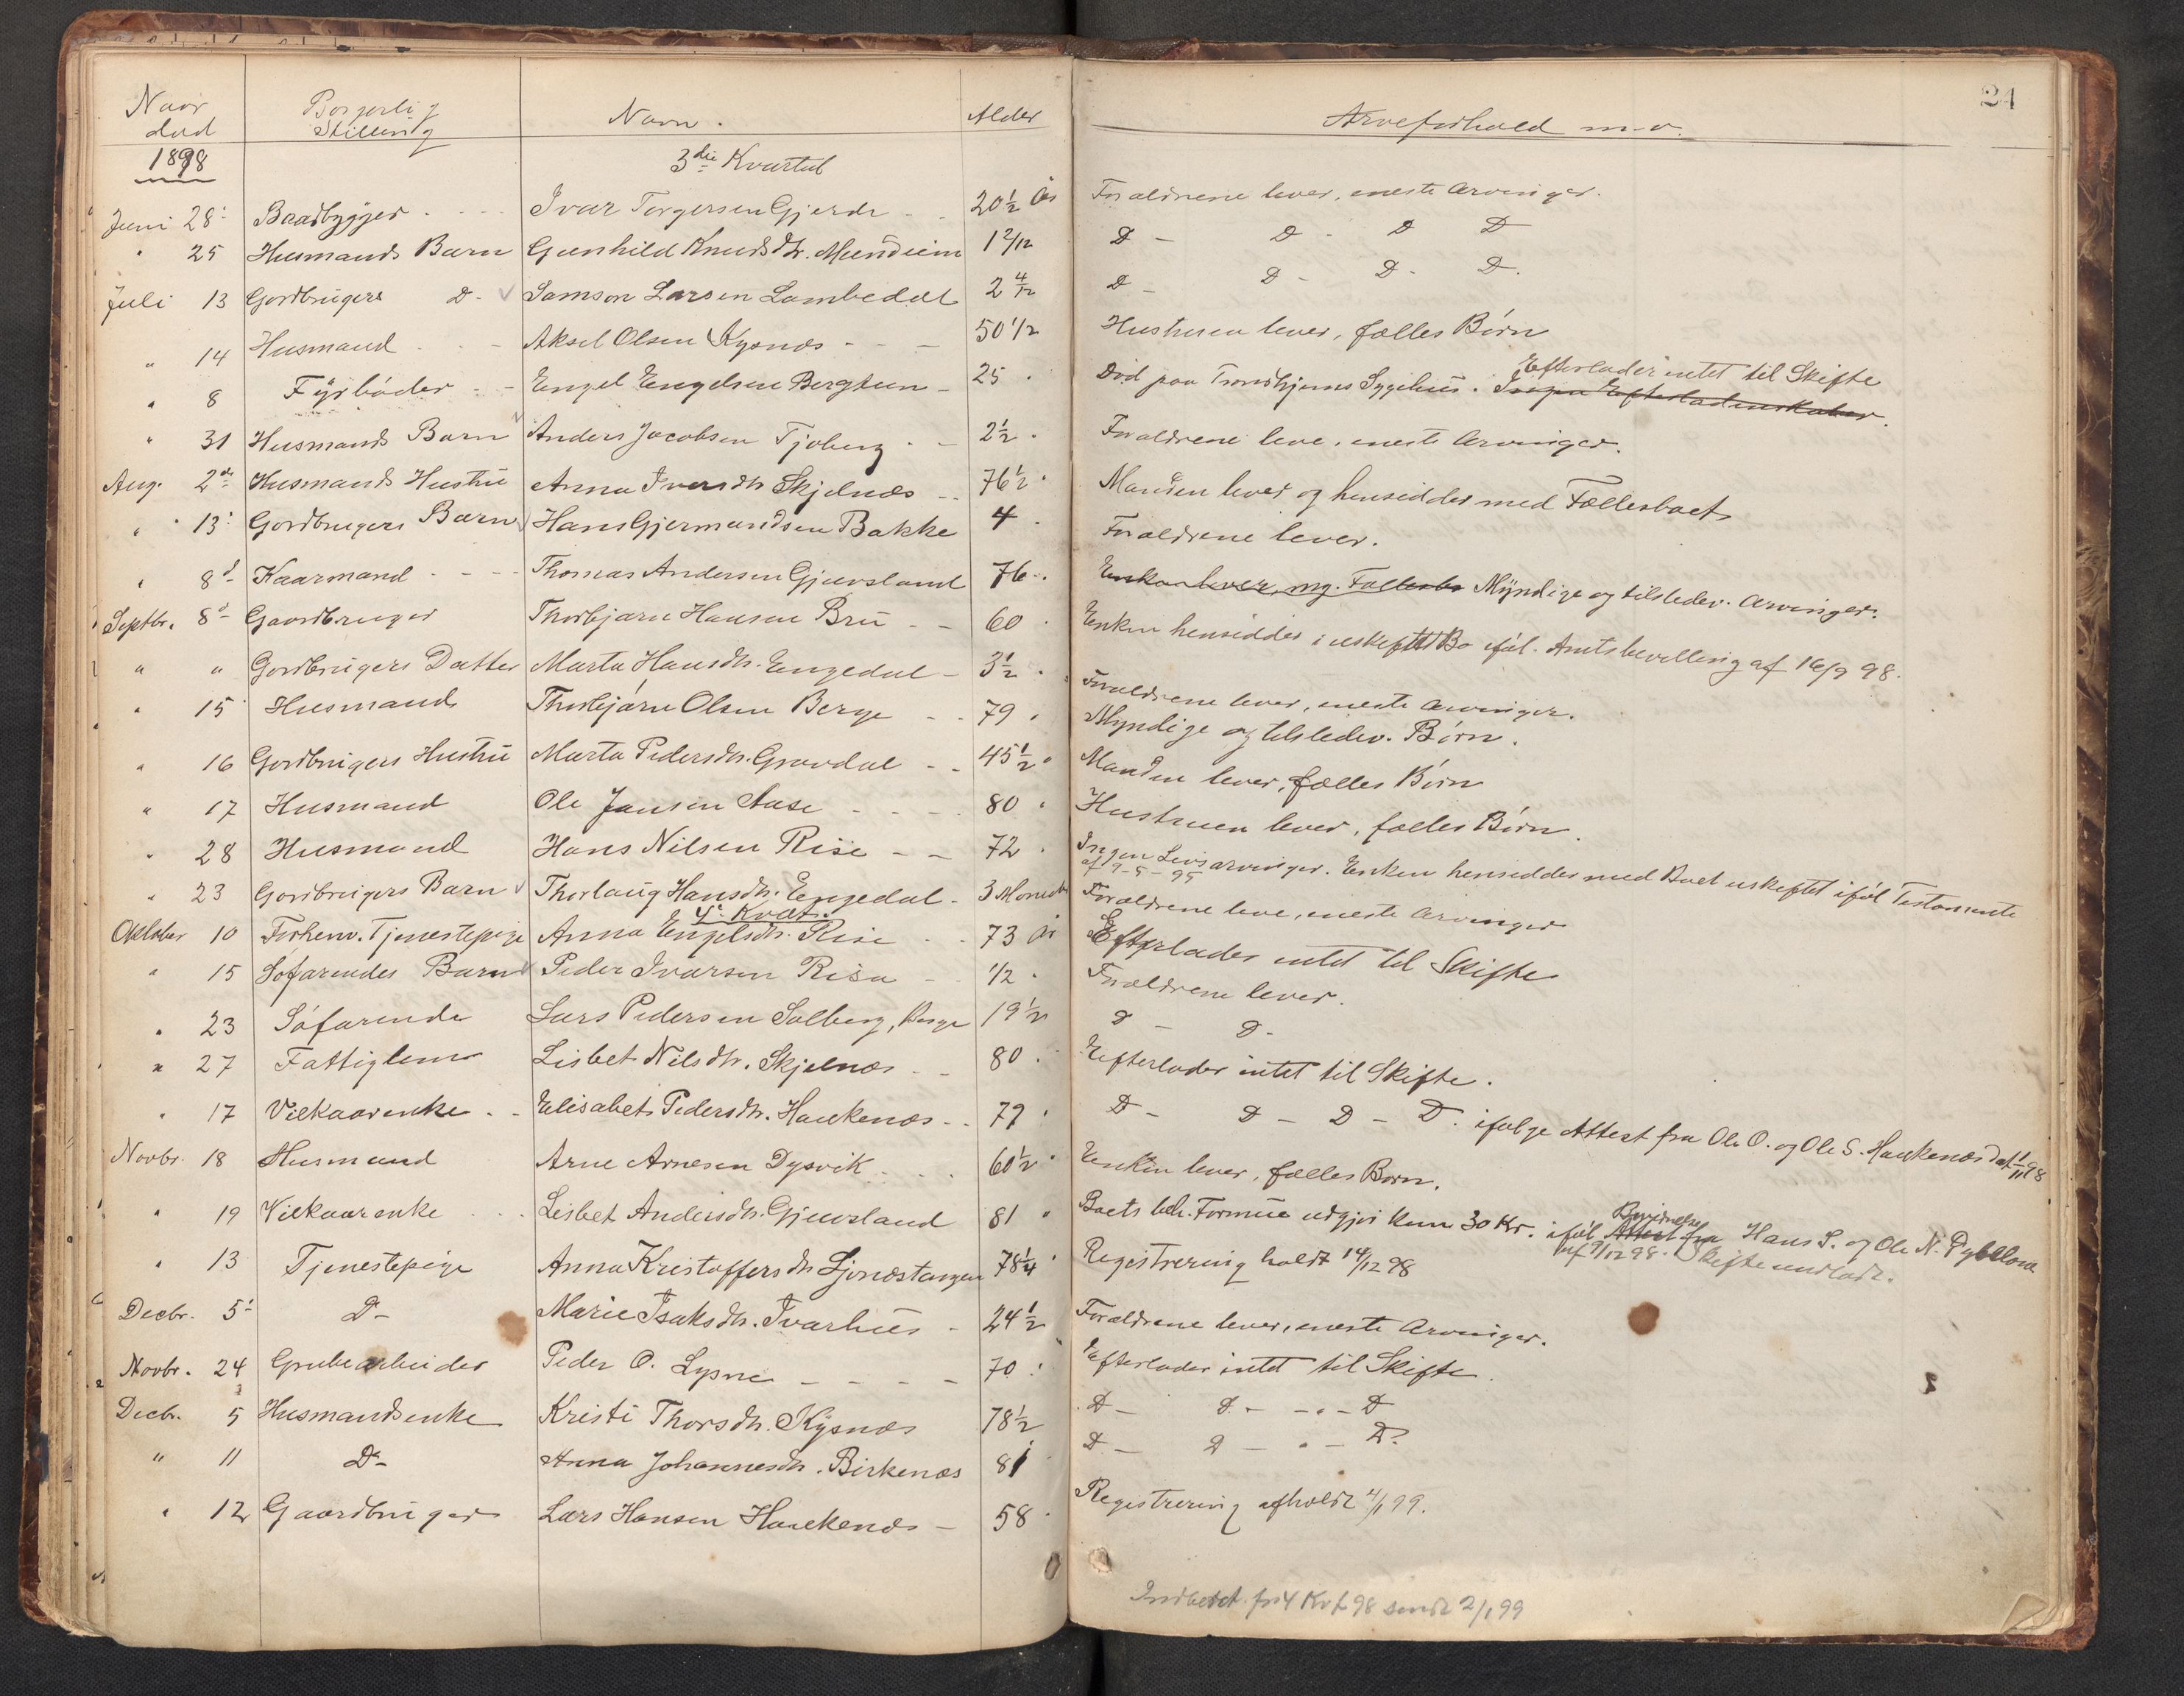 24
Naar død Borgerlig Stilling Navn. Alder Arveforhold m.v.
1898 3die Kvartal
Juni 28 Baadbygger Ivar Torgersen Gjerde 20½ År Forældrene lever, eneste Arvinger.
" 25 Husmands Barn Gunhild Knudsdtr. Mundheim 1 2/12 D - D - D D
Juli 13 Gordbrugers D- Samson Larsen Lambedal 2 4/12 D - D - D - D.
" 14 Husmand Aksel Olsen Kysnæs 50 1/2 Hustruen lever, fælles Børn
" 8 Fyrbøder Engel Engelsen Bergtun 25 Død paa Trondhjems Sygehus. Ingen Efterladenskaber. Efterlader intet til Skifte
" 31 Husmands Barn Anders Jacobsen Tjoberg 2½ Forældrene leve, eneste Arvinger.
Aug. 2de Husmands Hustru Anna Iversdtr Skjelnæs 76½ Manden lever og hensidder med Fællesboet
" 13 Gordbrugers Barn Hans Gjermundsen Bakke 4 Forældrene lever.
" 8d Kaarmand Thomas Andersen Gjuvsland 76 Enken lever, ng. Fællesbo Myndige og tilstedev. Arvinger.
Septbr. 8d Gaardbruger Thorbjørn Hansen Bru 60 Enken hensidder i uskiftet Bo iføl. Amtsbevilling af 16/9 98.
" " Gordbrugers Datter Marta Hansdtr. Engedal 3½ Forældrene lever, eneste Arvinger.
" 15 Husmand Thorbjørn Olsen Berge 79 Myndige og tilstedev. Børn.
" 16 Gordbrugers Hustru Marta Pedersdtr. Gravdal 45½ Manden lever, fælles Børn
" 17 Husmand Ole Jansen Aase 80 Hustruen lever, fælles Børn.
" 28 Husmand Hans Nilsen Rise 72 Ingen Livsarvinger. Enken hensidder med Boet uskiftet iføl Testamente
af 9-5-95
" 23 Gordbrugers Barn Thorlaug Hansdtr. Engedal 3 Moneder Forældrene leve, eneste Arvinger
4. Kvat.
Oktober 10 Forhenv. Tjenestepige Anna Engelsdtr. Rise 73 År Efterlader intet til Skifte
" 15 Søfarendes Barn Peder Ivarsen Risa 1/2 Forældrene lever.
" 23 Søfarende Lars Pedersen Solberg, Berge 19½ D - D -
" 27 Fattiglem Lisbet Nilsdtr. Skjelnæs 80 Efterlader intet til Skifte.
" 17 Vilkaarenke Elisabet Pedersdtr. Haukenæs 79 D - D - D - D. ifølge Attest fra Ole O. og Ole S. Haukenæs dat 1/11 98
Novbr. 18 Husmand Arne Arnesen Dysvik 60½ Enken lever, fælles Børn.
" 19 Vilkaarenke Lisbet Andersdtr. Gjuvsland 81 Boets beh. Formue udgjør kun 30 Kr. iføl. Attest Bevidnelse fra Hans S. og Ole N.
af 9/12 98. Skifte undladt.
" 13 Tjenestepige Anna Kristoffersdtr Ljonæstangen 78¼ Registrering holdt 14/12 98
Decbr. 5 D- Marie Isaksdtr. Ivarhus 24½ Forældrene lever, eneste Arvinger.
Novbr. 24 Grubearbeider Peder O. Lysne 70 Efterlader intet til Skifte.
Decbr. 5 Husmandsenke Kristi Thorsdtr. Kysnæs 78½ D - D - - " - D
" 11 D- Anna Johannesdtr. Birkenæs 81 D - D - " - D.
" 12 Gaardbruger Lars Hansen Haukenæs 58 Registrering afholdt 4/1 99.
Indberet. for 4 Kvt 98 sendt 2/1 99